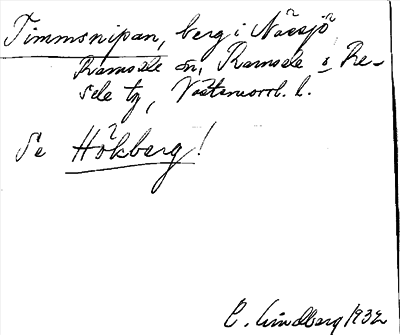 Timmsnipan, berg i Nässjö
Ramsele sn, Ramsele o Re-
sele tg, Västernorrl. l.
Se Hökberg!
C. Lindberg 1932